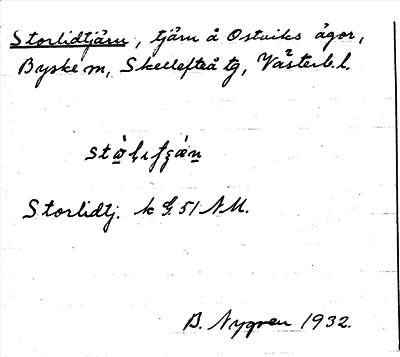 Storlidtjärn, tjärn å Ostviks ägor,
Byske sn, Skellefteå tg, Västerb. l.
Storlidtj. k G. 51 NM.
B. Nygren 1932.